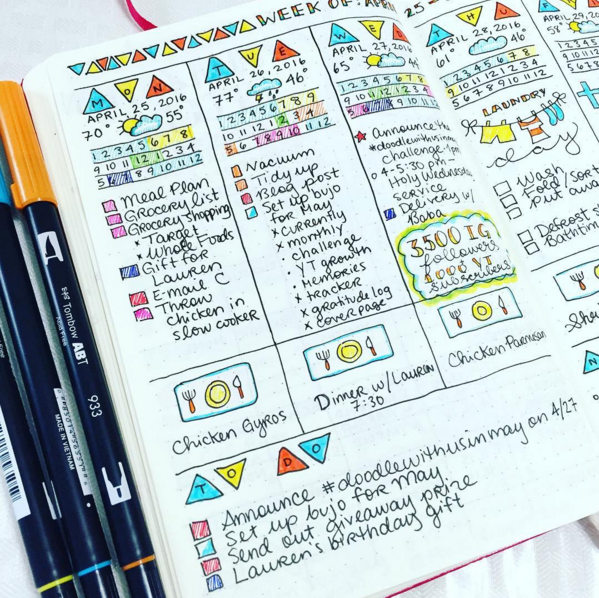 WEEK OF: APRIL 25
MON
APRIL 25, 2016
70° 55°
1 2 3 4 5 6 7 8
9 10 11 12 1 2 3 4
5 6 7 8 9 10 11 12
Meal Plan
Grocery list
Grocery Shopping
x Target
x Whole Foods
Gift for
Lauren
E-mail C
Throw
chicken in
slow cooker
Chicken Gyros
TUE
APRIL 26, 2016
77° 46°
1 2 3 4 5 6 7 8 9
10 11 12 1 2 3 4
5 6 7 8 9 10 11 12
Vacuum
Tidy up
Blog post
Set up bujo
for May
x currently
x monthly
challenge
• YT growth
• Memories
x tracker
x gratitude log
x cover page
Dinner w/ Lauren
7:30
WE
APRIL 27, 2016
65° 44°
1 2 3 4 5 6 7 8
9 10 11 12 1 2 3 4
5 6 7 8 9 10 11 12
Announce the
#doodlewithusinmay
challenge-1pm
4-5:30 pm-
Holy Wednesday
service
Delivery w/
Baba
3500 IG
followers
1000 YT
subscribers!
Chicken Parmesan
THU
APRIL 28, 2016
61° 46°
LAUNDRY
day
Wash
Fold, sort
put away
Deposit
Bathtime
F
APRIL 29, 2016
58°
TO DO
Announce #doodlewithusinmay on 4/27
Set up bujo for May
Send out giveaway prize
Lauren's birthday gift
N
Tombow ABT
933
MADE IN VIETNAM